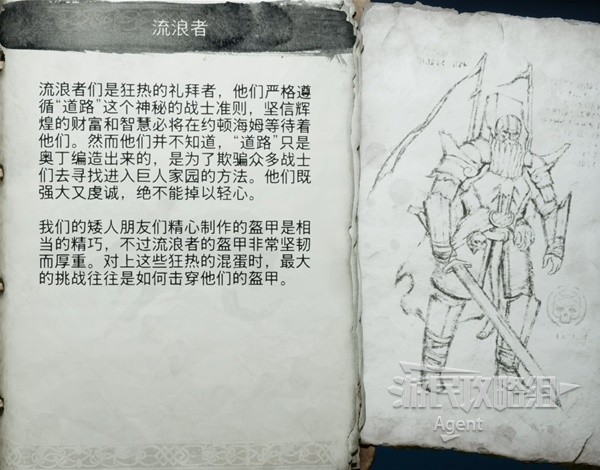 流浪者
流浪者们是狂热的礼拜者，他们严格遵
循“道路”这个神秘的战士准则，坚信辉
煌的财富和智慧必将在约顿海姆等待着
他们。然而他们并不知道，“道路”只是
奥丁编造出来的，是为了欺骗众多战士
们去寻找进入巨人家园的方法。他们既
强大又虔诚，绝不能掉以轻心。
我们的矮人朋友们精心制作的盔甲是相
当的精巧，不过流浪者的盔甲非常坚韧
而厚重。对上这些狂热的混蛋时，最大
的挑战往往是如何击穿他们的盔甲。
游民攻略组
Agent